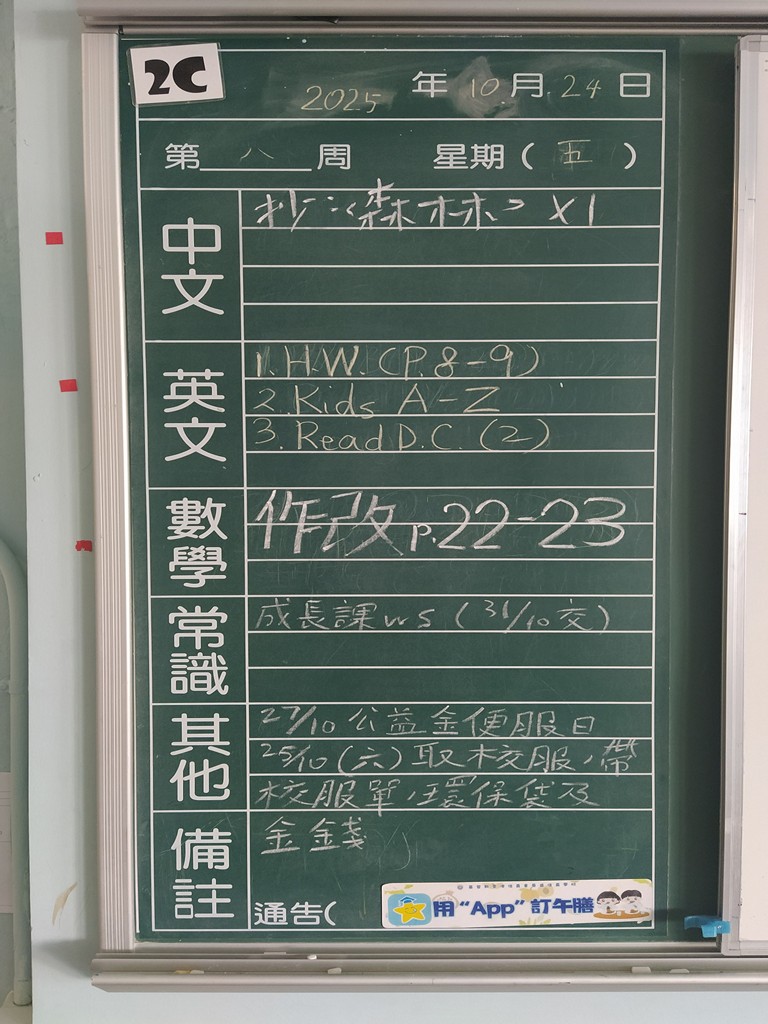 2C
2025 年 10 月 24 日
第 八 周 星期 ( 五 )
中文
抄：森林 X1
英文
1. H.W. (P. 8-9)
2. Kids A-Z
3. Read D.C. (2)
數學
作改 p.22-23
常識
成長課ws (31/10 交)
其他
27/10 公益金便服日
25/10 (六) 取校服，帶
校服單，環保袋及
備註
金錢
通告(
用“App”訂午膳